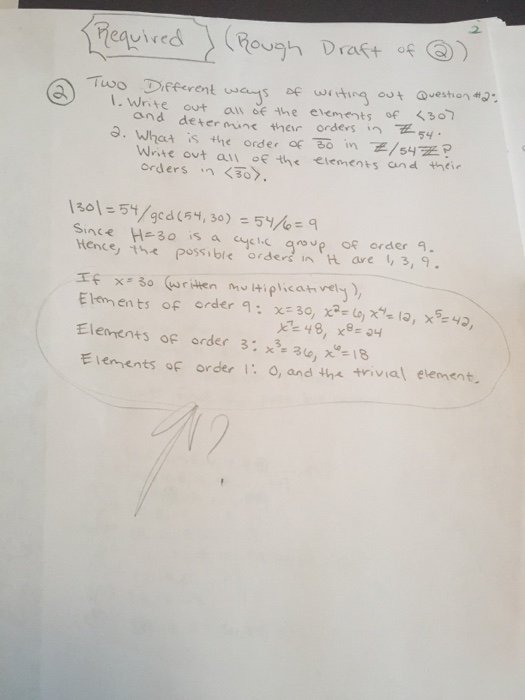 2
{Required} (Rough Draft of ②)
② Two Different ways of writing out Question #2:
1. Write out all of the elements of <30>
and determine their orders in ℤ54.
2. What is the order of 3̅0̅ in ℤ/54ℤ?
Write out all of the elements and their
orders in <3̅0̅>.
|30| = 54/gcd(54, 30) = 54/6 = 9
Since H=30 is a cyclic group of order 9.
Hence, the possible orders in H are 1, 3, 9.
If x=30 (written multiplicatively),
Elements of order 9: x=30, x²=6, x⁴=12, x⁵=42,
x⁷=48, x⁸=24
Elements of order 3: x³=36, x⁶=18
Elements of order 1: 0, and the trivial element.